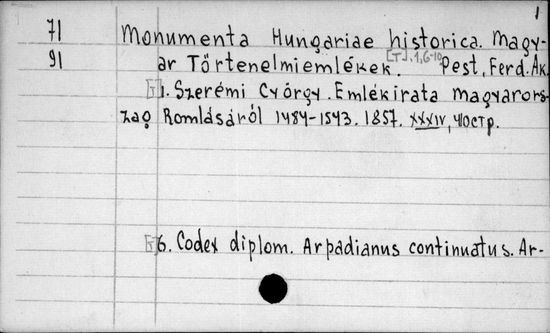 1
71 Monumenta Hungariae historica. Magy-
91 ar Törtenelmiemlékek. [T]. 1,6-10 Pest, Ferd. Ak.
[T] 1. Szerémi György. Emlékirata Magyarors-
zag Romlásáról 1484-1543. 1857. XXXIV, 410стр.
[T] 6. Codex diplom. Arpadianus continuatus. Ar-